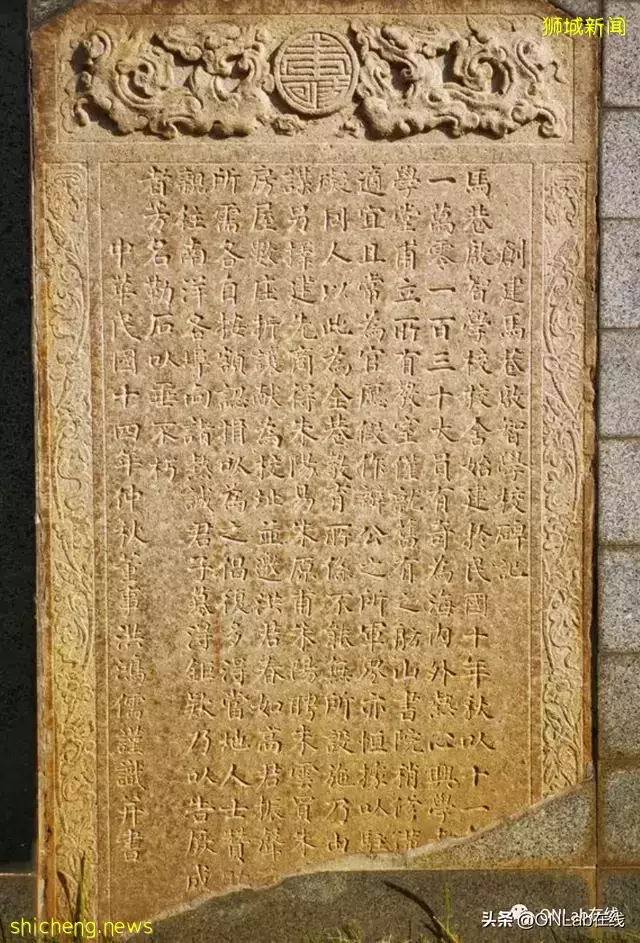 狮城新闻
壽
創建馬巷啟智學校碑記
馬巷啟智學校校舍始建於民國十年秋以十一
一萬零一百三十大員有奇為海內外熱心興學
學堂甫立所有教室僅就舊有之舫山書院稍修
適宜且常為官廳假作辦公之所軍界亦恒據以駐
礙同人以此為全巷教育所係不能無所設施乃由
謀另擇建先商得朱陽易朱原甫朱陽聘朱雲質朱
房屋數座折讓献為校址並邀洪君春如高君振聲
所需各自按額認捐以為之倡復多得當地人士贊
親往南洋各埠向諸熱誠君子募得鉅欵乃以告厥成
首芳名勒石以垂不朽
中華民國十四年仲秋董事洪鴻儒謹識并書
shicheng.news
头条@ONLab在线